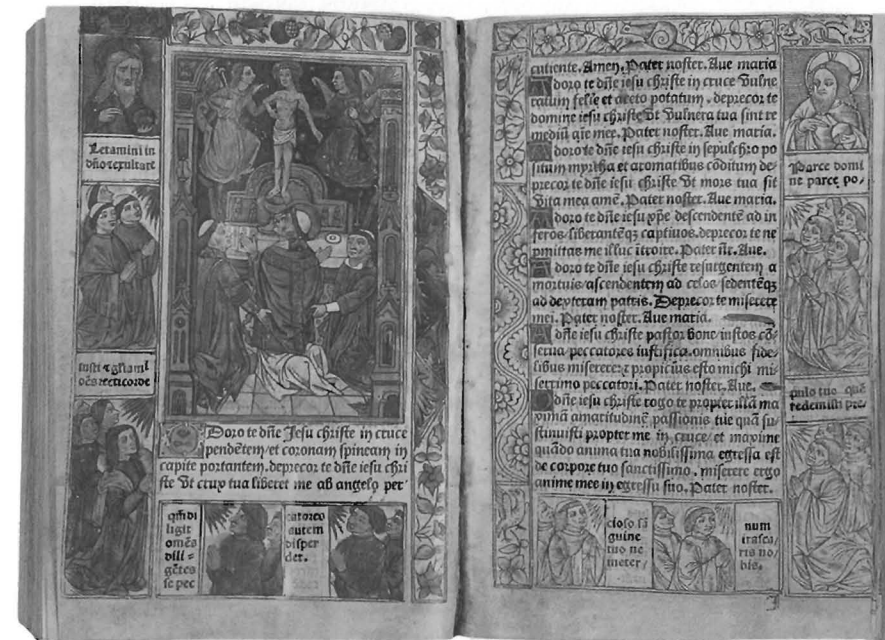 Letamini in
dño et exultate
iusti et gliamĩ
oẽs recti corde
Adoro te dñe Jesu christe in cruce
pendẽtem/et coronam spineam in
capite portantem.deprecor te dñe iesu chri
ste vt crux tua liberet me ab angelo per
qm̃ di
ligit
omẽs
dili=
gẽtes
se pec
catores
autem
disper
det.
cutiente.Amen.Pater noster.Aue maria
Adoro te dñe iesu christe in cruce vulne
ratum felle et aceto potatum.deprecor te
domine iesu christe vt vulnera tua sint re
mediũ aĩe mee.Pater noster.Aue maria.
Adoro te dñe iesu christe in sepulchro po
situm myrrha et aromatibus cõditum de
precor te dñe iesu christe vt mors tua sit
vita mea amẽ.Pater noster.Aue maria.
Adoro te dñe iesu xp̃e descendentẽ ad in
feros/liberantẽq̃ captiuos.deprecor te ne
pmittas me illuc ĩtroire.Pater ñr.Aue.
Adoro te dñe iesu christe resurgentem a
mortuis/ascendentem ad celos/sedentẽq̃
ad dexteram patris.Deprecor te miserere
mei.Pater noster.Aue maria.
O dñe iesu christe pastor bone/iustos cõ=
serua/peccatores iustifica.omnibus fide
libus miserere:et propicius esto michi mi
serrimo peccatori.Pater noster.Aue.
O dñe iesu christe rogo te propter illã ma
ximã amaritudinẽ passionis tue quã su
stinuisti propter me in cruce/et maxime
quãdo anima tua nobilissima egressa est
de corpore tuo sanctissimo.miserere ergo
anime mee in egressu suo.Pater noster.
Parce domi
ne parce po/
pulo tuo quẽ
redemisti pre/
cioso sã
guine
tuo ne
ineter/
num
irasca
ris no/
bis.